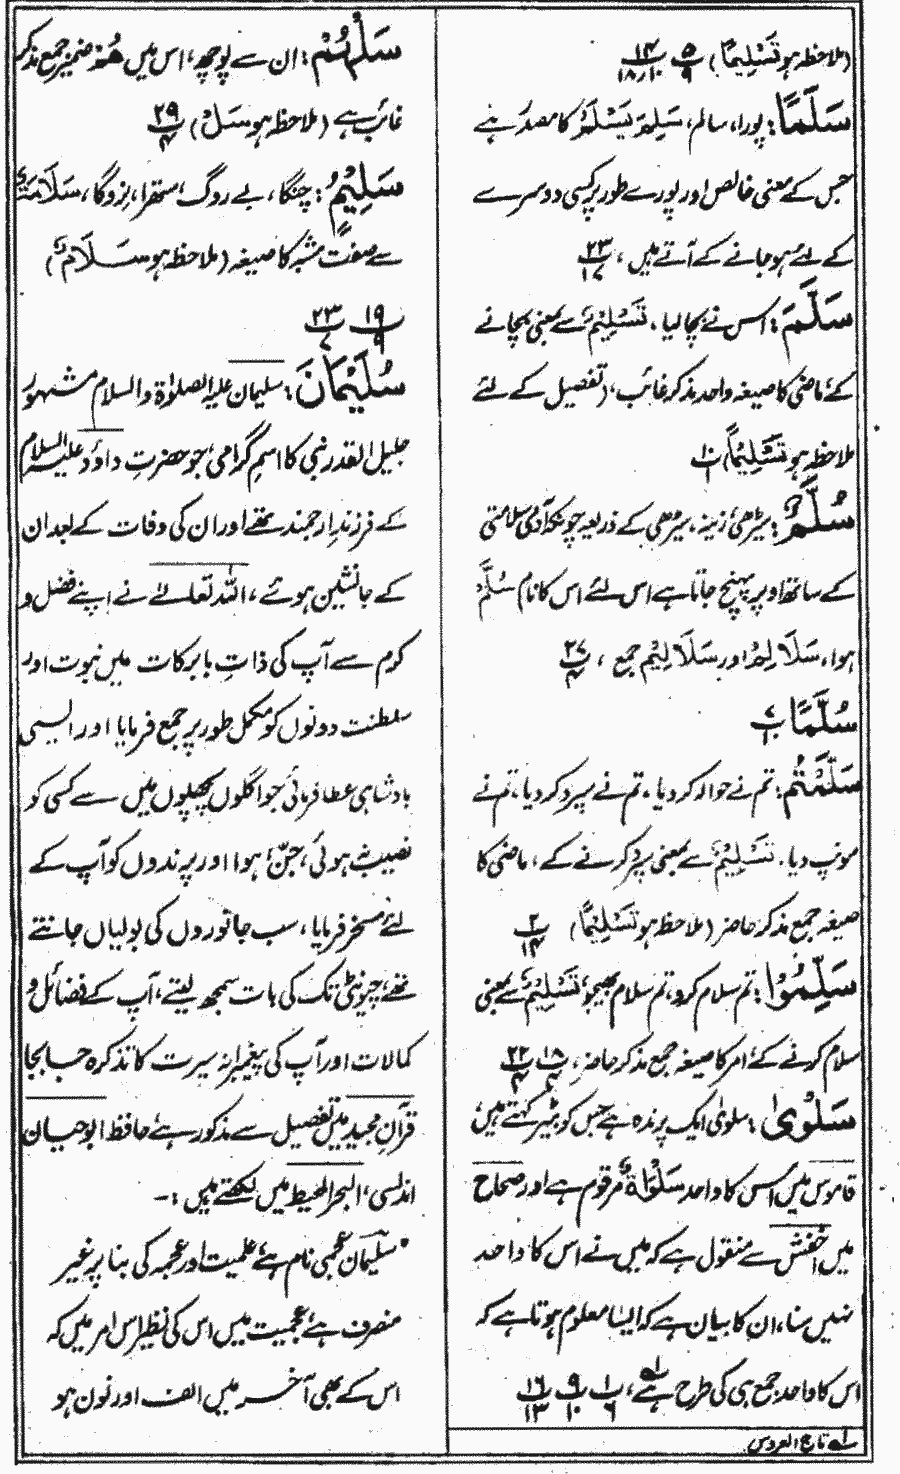 (ملاحظہ ہو تَسْلِیْمًا) ۵/۹ ۱۴/۱۸،۱۰
سَلَمًا: پورا، سالم، سَلِمَ یَسْلَمُ کا مصدر ہے
جس کے معنی خالص اور پورے طور پر کسی دوسرے
کے لئے ہو جانے کے آتے ہیں، ۲۳/۱۷
سَلَّمَ: اس نے بچا لیا، تَسْلِیْمٌ سے بمعنی بچانے
کے، ماضی کا صیغہ واحد مذکر غائب، (تفصیل کے لئے
ملاحظہ ہو تَسْلِیْمًا) ۱۰
سُلَّمٌ: سیڑھی، زینہ، سیڑھی کے ذریعہ چونکہ آدمی سلامتی
کے ساتھ اوپر پہنچ جاتا ہے اس لئے اس کا نام سُلَّم
ہوا، سَلَالِمُ اور سَلَالِیْمُ جمع، ۲۷/۴
سُلَّمًا ۷
سَلَّمْتُمْ: تم نے حوالہ کر دیا، تم نے سپرد کر دیا، تم نے
سونپ دیا، تَسْلِیْمٌ سے بمعنی سپرد کرنے کے، ماضی کا
صیغہ جمع مذکر حاضر (ملاحظہ ہو تَسْلِیْمًا) ۲/۱۴
سَلِّمُوْا: تم سلام کرو، تم سلام بھیجو، تَسْلِیْمٌ سے بمعنی
سلام کرنے کے، امر کا صیغہ جمع مذکر حاضر، ۱۸/۴ ۲۲/۴
سَلْوٰی: سلوٰی ایک پرندہ ہے جس کو بٹیر کہتے ہیں،
قاموس میں اس کا واحد سَلْوَاۃٌ مرقوم ہے اور صحاح
میں اخفش سے منقول ہے کہ میں نے اس کا واحد
نہیں سنا، ان کا بیان ہے کہ ایسا معلوم ہوتا ہے کہ
اس کا واحد جمع ہی کی طرح ہے، ۱/۶ ۹/۱۰ ۱۶/۱۳
لہ تاج العروس
سَلْهُمْ: ان سے پوچھ، اس میں هُمْ ضمیر جمع مذکر
غائب ہے (ملاحظہ ہو سَلْ) ۲۹/۴
سَلِیْمٌ: چنگا، بے روگ، ستھرا، نروگا، سَلَامَۃٌ
سے صفت مشبہ کا صیغہ (ملاحظہ ہو سَلَامٌ)
۱۹/۹ ۲۳/۷
سُلَیْمَانَ: سلیمان علیہ الصلوٰۃ والسلام مشہور
جلیل القدر نبی کا اسم گرامی، جو حضرتِ داؤد علیہ السلام
کے فرزندِ ارجمند تھے اور ان کی وفات کے بعد ان
کے جانشین ہوئے، اللہ تعالےٰ نے اپنے فضل و
کرم سے آپ کی ذاتِ بابرکات میں نبوت اور
سلطنت دونوں کو مکمل طور پر جمع فرمایا اور ایسی
بادشاہی عطا فرمائی جو اگلوں پچھلوں میں سے کسی کو
نصیب نہ ہوئی، جنّ، ہوا اور پرندوں کو آپ کے
لئے مسخر فرمایا، سب جانوروں کی بولیاں جانتے
تھے، چیونٹی تک کی بات سمجھ لیتے، آپ کے فضائل و
کمالات اور آپ کی پیغمبرانہ سیرت کا تذکرہ جا بجا
قرآن مجید میں تفصیل سے مذکور ہے، حافظ ابو حیان
اندلسی، البحر المحیط میں لکھتے ہیں:۔
"سلیمان عجمی نام ہے، علمیت اور عجمہ کی بنا پر غیر
منصرف ہے، عجمیت میں اس کی نظیر اس امر میں کہ
اس کے بھی آخر میں الف اور نون ہو